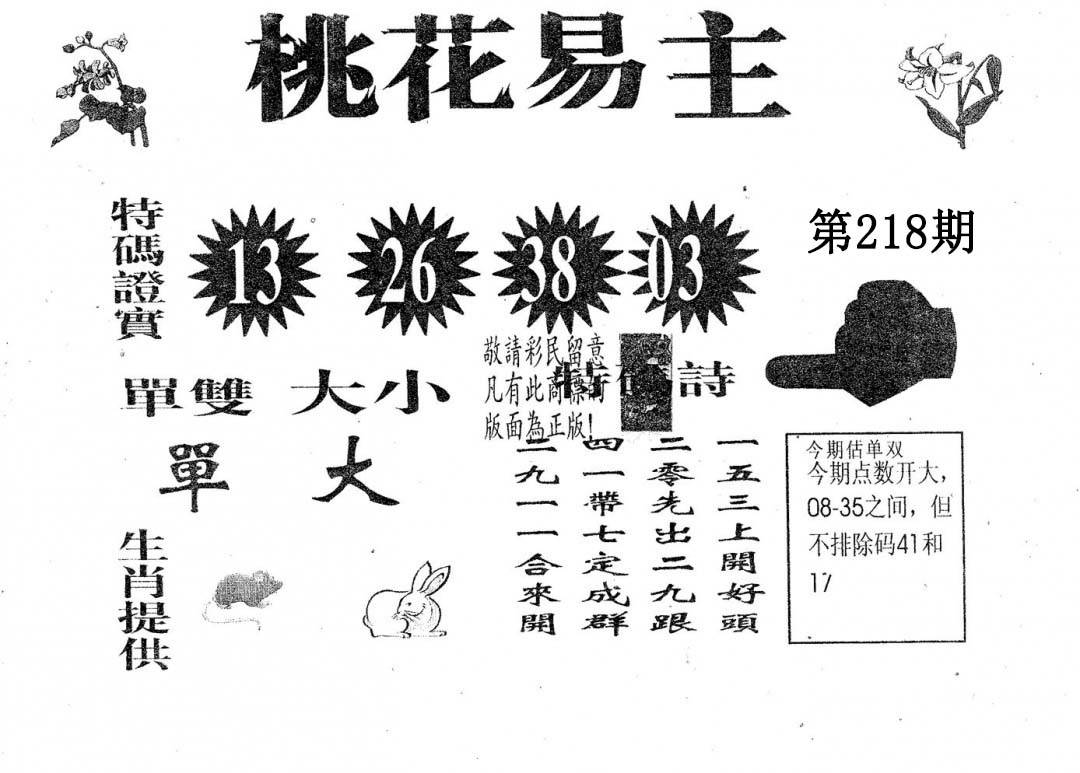 桃花易主
第218期
特碼證實
13 26 38 03
單雙 大小
單 大
敬請彩民留意
凡有此商標的
版面為正版!
特碼詩
一五三上開好頭
二零先出二九跟
四一帶七定成群
二九一一合來開
今期估单双
今期点数开大,
08-35之间，但
不排除码41和
17
生肖提供